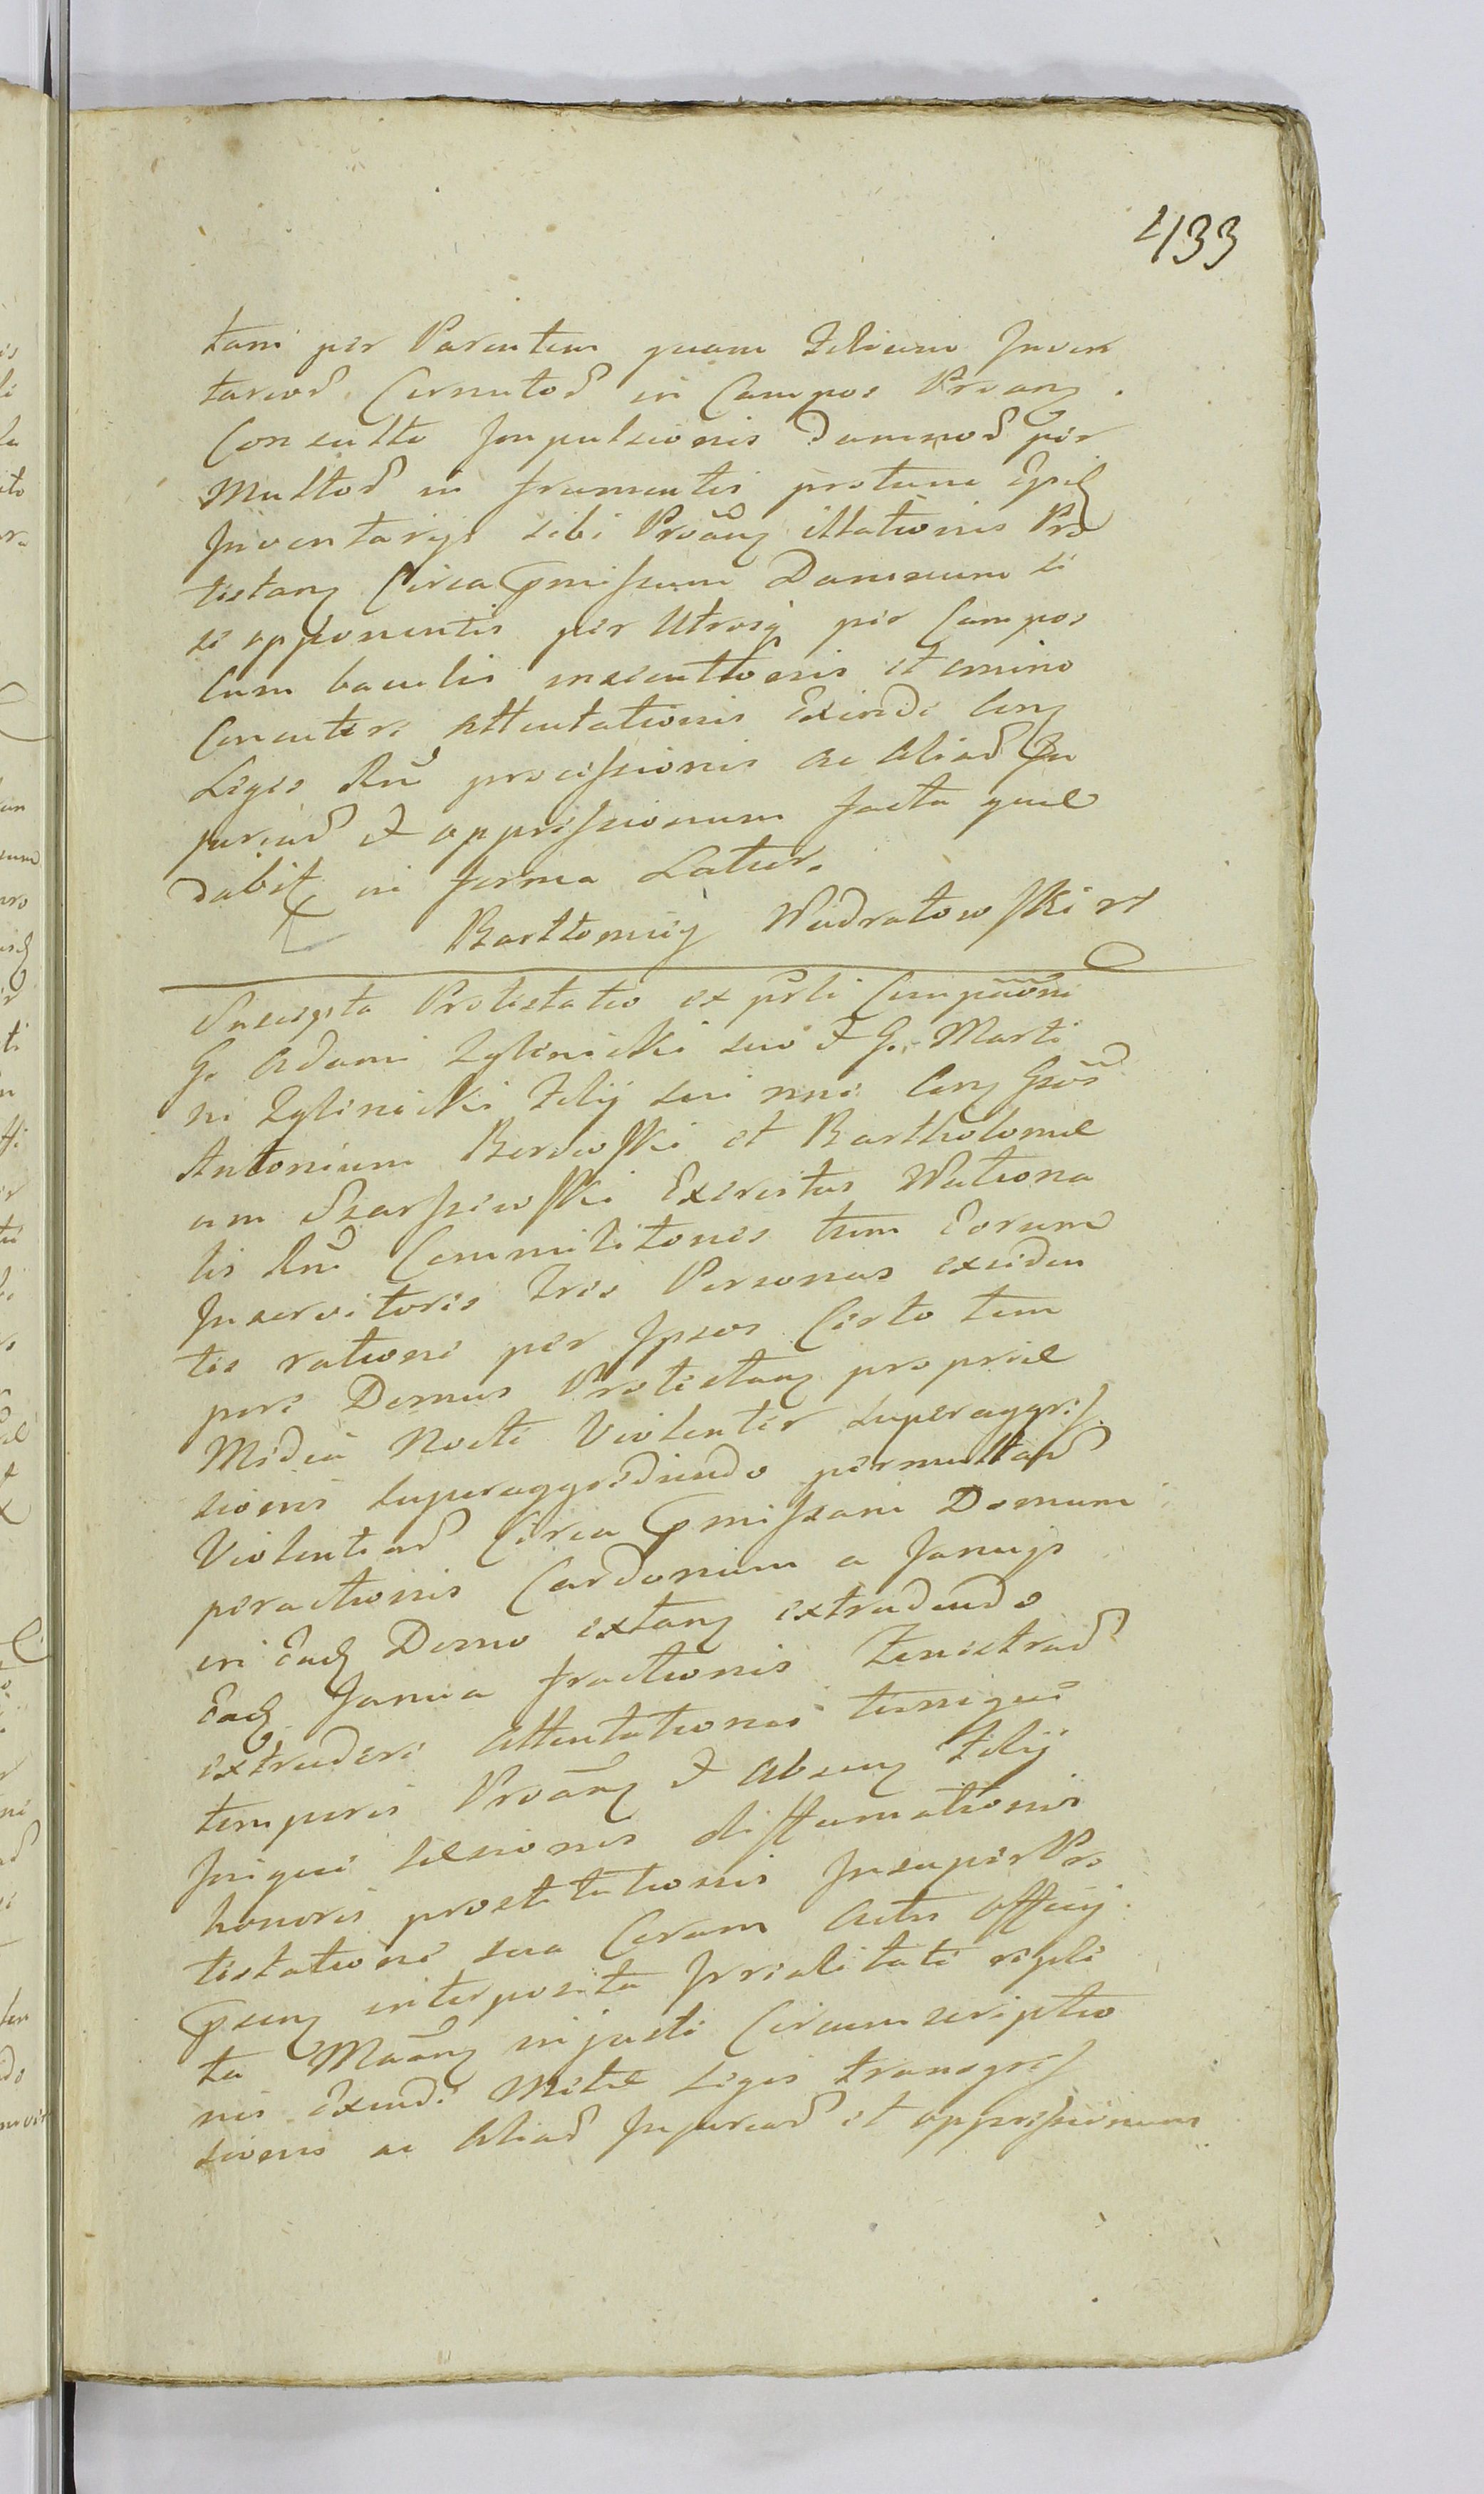 433
tam per Parentem quam Filium Inven
tarior̃ Cornutor̃ in Campos Proãng
Consulto Impulsionis Damnor̃ per
Multor̃ in frumentis protunc
Inventarijs sibi Proãng illationis Pro
testang Circa pmissum Damnum si
se opponentis per Utrosq per Campos
Cum baculis insecutionis et omino
Concutere attentationis Exinde Cong
Leges Rñi processionis ac aliar̃ In
juriar̃ et oppressionum facta quae
dabit in forma Latior.
Bartłomiey
Suscepta Protestatio ex prti
G. Adami Zglinicki suo et G. Marti
ni Zglinicki Filij sui nne Cong Gsos
Antonium et Bartholomae
um Exercitus Nationa
lis Rñi Commilitones tum Eorum
Inservitores Tres Personas
tis ratione per Ipsos Certo tem
pore Domus Protestang propriae
Media Nocte Violenter superaggres
sionis superaggrediendo permultar̃
Violentiar̃ Circa pmissam Domum
peractionis Cardonum a Janujs
in Eadg Domo extang extrudendo
Eadg Janua fractionis Fenestrar̃
extrudere attentationis
temporis Proãng et Abseng Filij
Inique laesionis diffamationis
honoris prostitutionis Insuper Pro
testatione sua Coram Actis Officij
pseng interposita
ta Maãng injuste Circumscriptio
nis Exinde Metae Legis transgres
sionis ac Aliar̃ Injuriar̃ et oppressionum